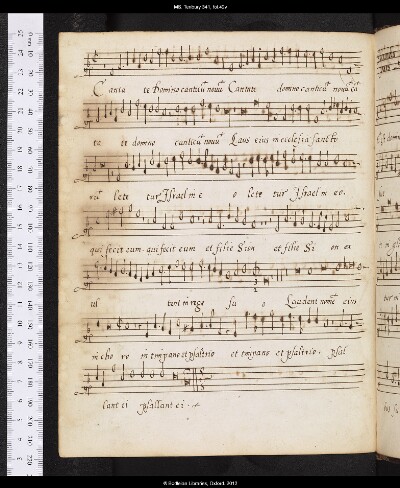 MS. Tenbury 341, fol.49v
Canta te Domino canticũ nouũ Cantate domno canticũ nouũ Ca
ta te domno canticũ nouũ Laus eius in ecclesia sancto
rũ lete tur Israel in e o lete tur Israel in eo.
qui fecit eum. qui fecit eum et filie Sion et filie Si on ex
ul tent in rege su o Laudent nomẽ eius
in cho ro in timpano et psalterio et timpano et psalterio. psal
lant ei psallant ei
© Bodleian Libraries, Oxford, 2012